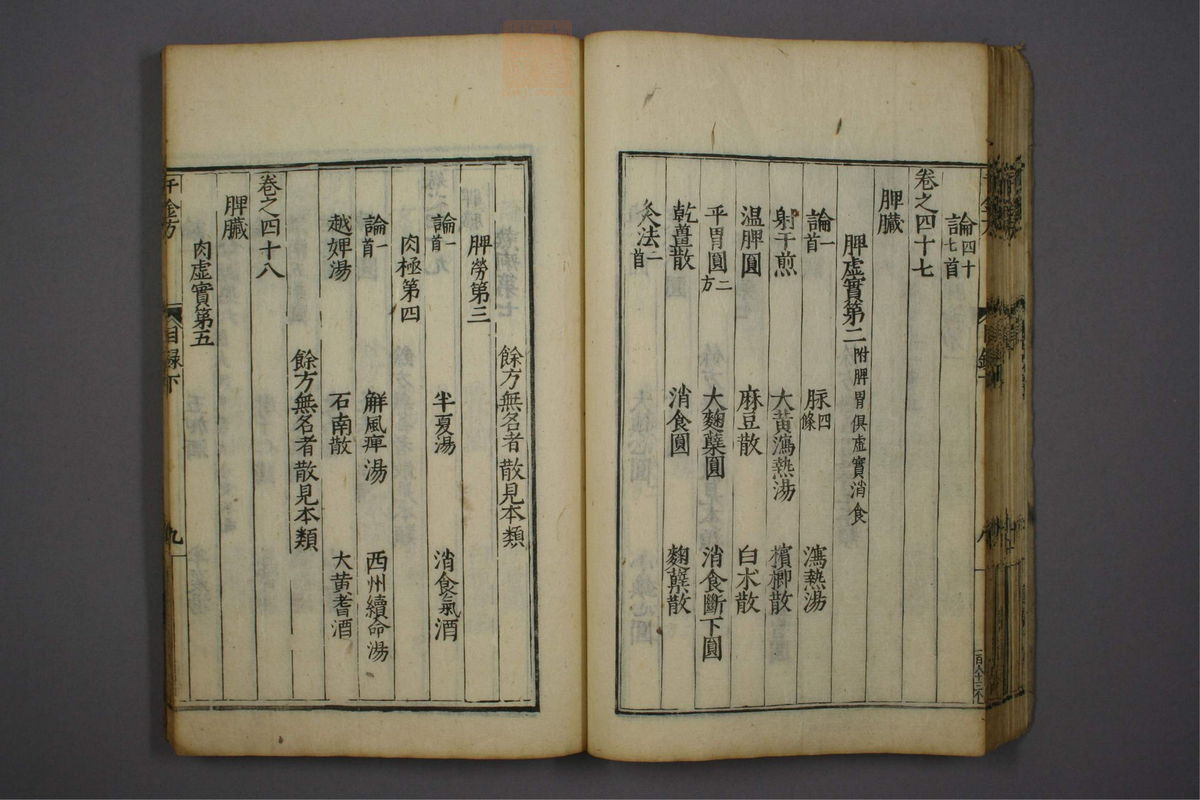 論四十七首
卷之四十七
脾臟
脾虛實第二附脾胃俱虛實消食
論一首 脉四條 瀉熱湯
射干煎 大黃瀉熱湯 檳榔散
温脾圓 麻豆散 白朮散
平胃圓二方 大麴蘗圓 消食斷下圓
乾薑散 消食圓 麴蘗散
灸法二首
餘方無名者散見本類
脾勞第三
論一首 半夏湯 消食氣酒
肉極第四
論一首 解風痺湯 西州續命湯
越婢湯 石南散 大黃耆酒
餘方無名者散見本類
卷之四十八
脾臟
肉虛實第五
千金方 目録下 九